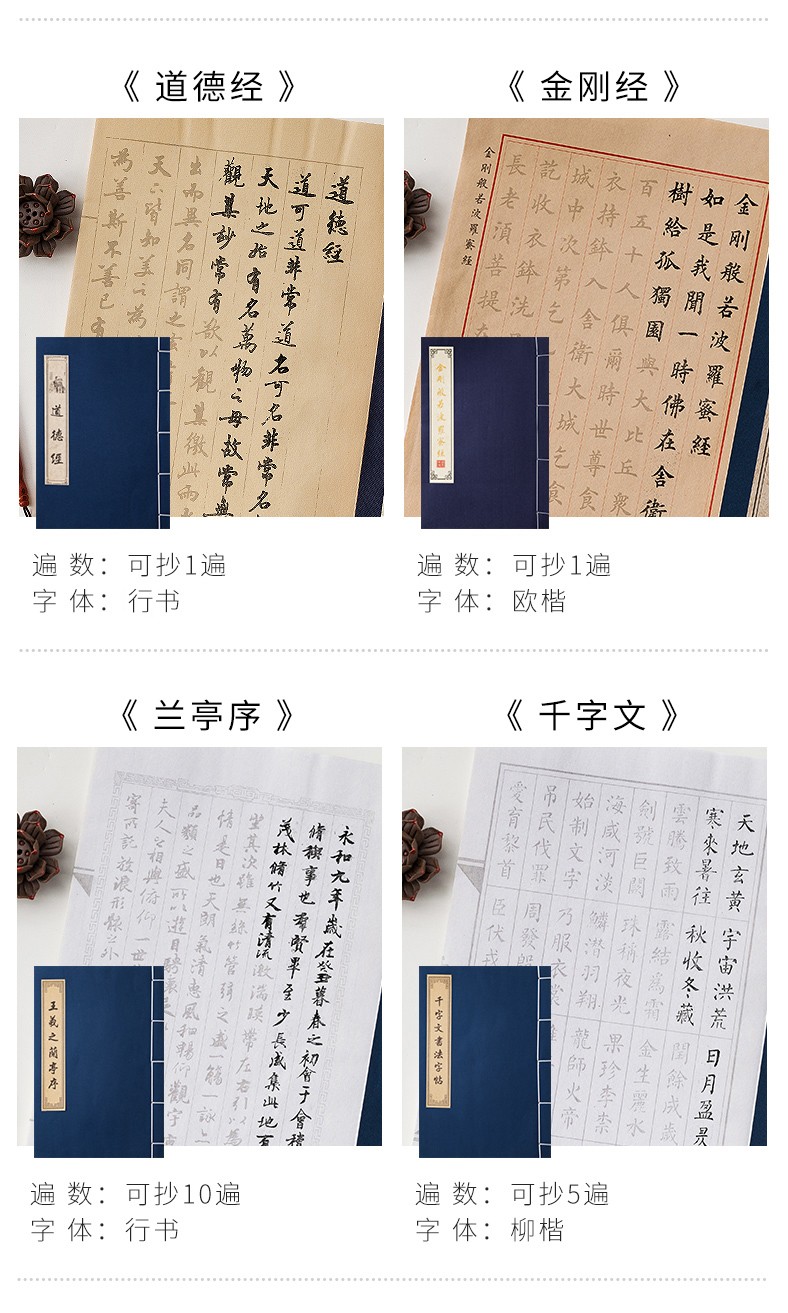 《 道德经 》
道德經
道可道非常道名可名非常名
天地之始有名萬物之母故常無
觀其妙常有欲以觀其徼此兩
出而異名同謂之玄
天下皆知美之為
為善斯不善已有
道德經
遍 数：可抄1遍
字 体：行书
《 金刚经 》
金剛般若波羅蜜經
如是我聞一時佛在舍衛
樹給孤獨園與大比丘眾
百五十人俱爾時世尊食
衣持鉢入舍衛大城乞食
城中次第乞
訖收衣鉢洗
長老湏菩提
金剛般若波羅蜜經
金剛般若波羅蜜經
遍 数：可抄1遍
字 体：欧楷
《 兰亭序 》
永和九年歲在癸丑暮春之初會于會稽
脩稧事也羣賢畢至少長咸集此地有
茂林脩竹又有清流激湍暎帶左右引以為
坐其次雖無絲竹管弦之盛一觴一詠
情是日也天朗氣清惠風和暢仰觀宇宙
品類之盛所以遊目騁懷足
夫人之相與俯仰一世
寄所託放浪形骸之外
王羲之蘭亭序
遍 数：可抄10遍
字 体：行书
《 千字文 》
天地玄黃 宇宙洪荒 日月盈昃
寒來暑往 秋收冬藏 閏餘成歲
雲騰致雨 露結為霜 金生麗水
劍號巨闕 珠稱夜光 果珍李柰
海咸河淡 鱗潜羽翔 龍師火帝
始制文字 乃服衣裳
吊民伐罪 周發
愛育黎首 臣伏戎
千字文書法字帖
遍 数：可抄5遍
字 体：柳楷